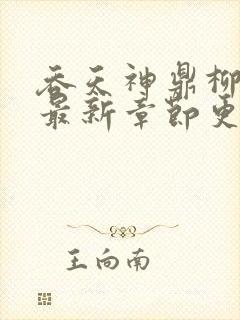 吞天神鼎柳
最新章节更
王向南